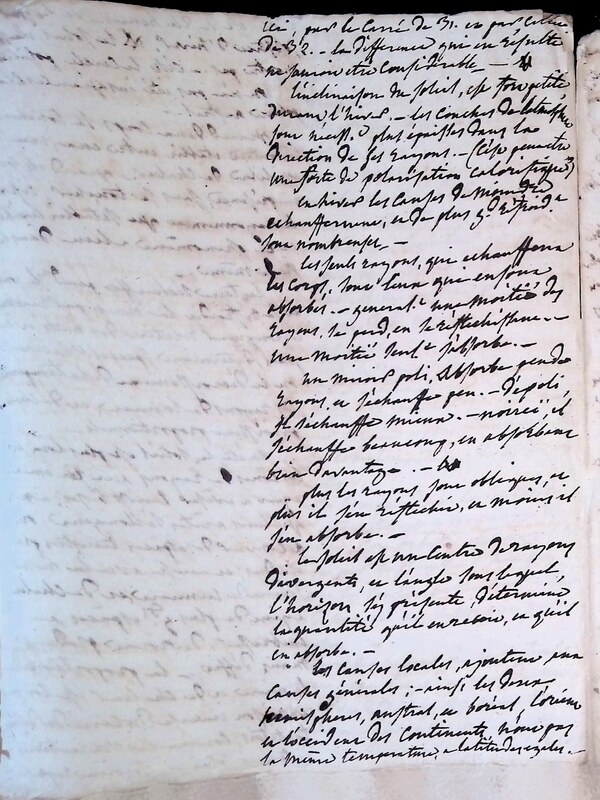 ici, par le Carré de 31. et par Celui
de 32. – la difference qui en résulte
ne sauroit etre Considérable –
l'inclinaison du soleil, est fort petite
durant l'hiver. – les Couches de l'atmosphère
sont nécess.t plus épaisses dans la
direction de ses rayons. – (C'est peut etre
une sorte de polarisation calorifique)
en hiver les Causes de moindre
echauffement, et de plus gd. froid
sont nombreuses –
les seuls rayons, qui echauffent
les Corps, sont Ceux qui en sont
absorbés. – general.t une moitié des
rayons, se perd, en se réflechissant. –
une moitié seul.t s'absorbe. –
un miroir poli, absorbe peu de
rayons, et s'échauffe peu. – dépoli
il s'échauffe mieux. – noirci, il
s'échauffe beaucoup, en absorbant
bien davantage. –
plus les rayons sont obliques, et
plus il s'en réflechit, et moins il
s'en absorbe. –
le soleil est un Centre de rayons
divergents, et l'angle sous lequel,
l'horizon s'y présente, détermine
la quantité qu'il en reçoit, et qu'il
en absorbe. –
les Causes locales, ajoutent aux
Causes générales ; – ainsi les deux
hemispheres, austral, et boréal, l'orient
et l'occident des Continents, n'ont pas
la même temperature, a latitudes egales. –